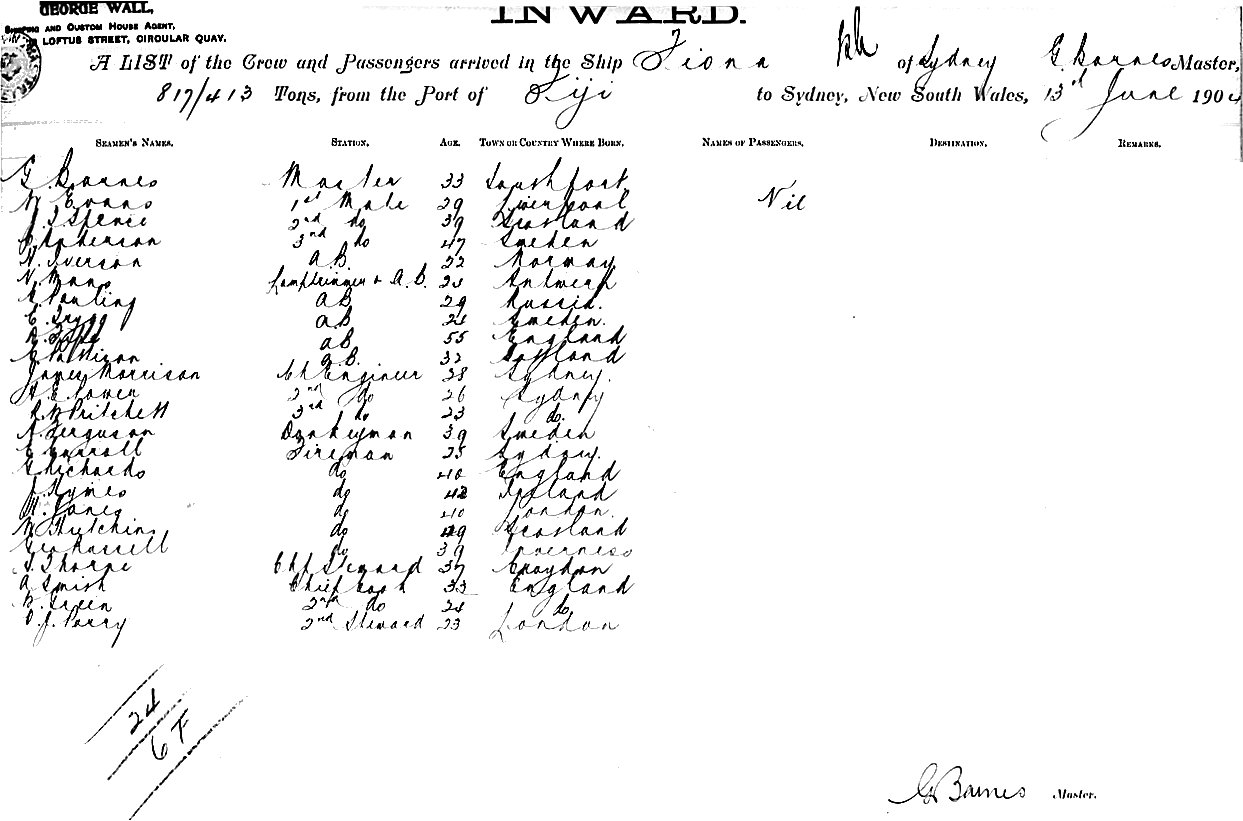 GEORGE WALL,
INWARD.
SHIPPING AND CUSTOM HOUSE AGENT,
LOFTUS STREET, CIRCULAR QUAY.
A LIST of the Crew and Passengers arrived in the Ship Fiona of Sydney G. Barnes Master,
817/413 Tons, from the Port of Fiji to Sydney, New South Wales, 13d June 1904
SEAMEN'S NAMES. STATION. AGE. TOWN OR COUNTRY WHERE BORN. NAMES OF PASSENGERS. DESTINATION. REMARKS.
G. Barnes Master 33 Southport Nil
W Evans 1st Mate 29 Liverpool
J. J Spence 2nd do 39 Scotland
Anderson 3rd do 47 Sweden
Iverson A.B. 22 Norway
Mans Lamptrimmer & A.B. 25 Antwerp
Pauling AB 29 Russia.
C. Trygg AB Sweden.
AB 55 England
Pattison A.B. 32 Scotland
James Morrison Ch Engineer 28 Sydney.
A E Power 2nd do 26 Sydney
R W Pritchett 3rd do 23 do.
A Ferguson Donkeyman 39 Sweden
E Carroll Fireman 25 Sydney.
G Richards do 40 England
J. Hymes do 42 Ireland
M. Jones do 40 London.
W Hutchins do 49 Scotland
Geo Harrell do 39 Inverness
Thorpe Chf Steward 37 Croydon
A Smith Chief Cook 33 England
Green 2nd do 24 do
J. Parry 2nd Steward 23 London
24
6 F
G Barnes Master.